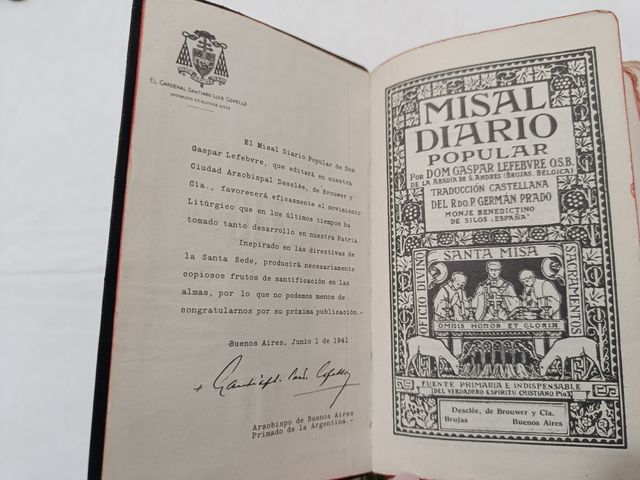 EL CARDENAL SANTIAGO LUIS COPELLO
ARZOBISPO DE BUENOS AIRES
El Misal Diario Popular de Dom
Gaspar Lefebvre, que editará en nuestra
Ciudad Arzobispal Desclée, de Brouwer y
Cía., favorecerá eficazmente el movimiento
Litúrgico que en los últimos tiempos ha
tomado tanto desarrollo en nuestra Patria.
Inspirado en las directivas de
la Santa Sede, producirá necesariamente
copiosos frutos de santificación en las
almas, por lo que no podemos menos de
congratularnos por su próxima publicación.-
-Buenos Aires, Junio 1 de 1941
+ Santiago L. Card. Copello
Arzobispo de Buenos Aires
Primado de la Argentina.-
MISAL
DIARIO
POPULAR
POR DOM GASPAR LEFEBVRE O.S.B.
DE LA ABADIA DE S. ANDRES (BRUJAS, BELGICA)
TRADUCCIÓN CASTELLANA
DEL RDO. P. GERMÁN PRADO
MONJE BENEDICTINO
DE SILOS (ESPAÑA)
SANTA MISA
OFICIO DIVINO
SACRAMENTOS
OMNIS HONOR ET GLORIA
FUENTE PRIMARIA E INDISPENSABLE
DEL VERDADERO ESPIRITU CRISTIANO PIO X
Desclée, de Brouwer y Cía.
Brujas Buenos Aires